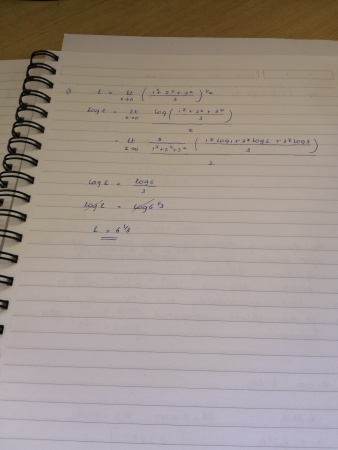 L = lt x→0 ( 1^x + 2^x + 3^x / 3 )^1/x
log L = lt x→0 log ( 1^x + 2^x + 3^x / 3 ) / x
= lt x→0 3 / 1^x + 2^x + 3^x ( 1^x log 1 + 2^x log 2 + 3^x log 3 / 3 )
log L = log 6 / 3
log L = log 6^1/3
L = 6^1/3